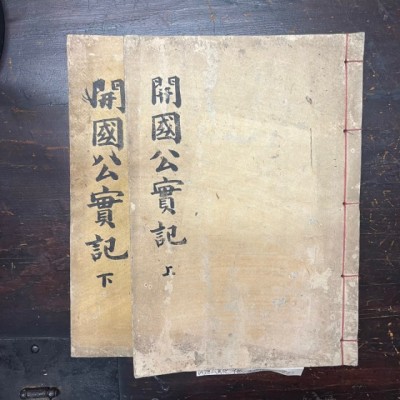 開國公實記 上
開國公實記 下